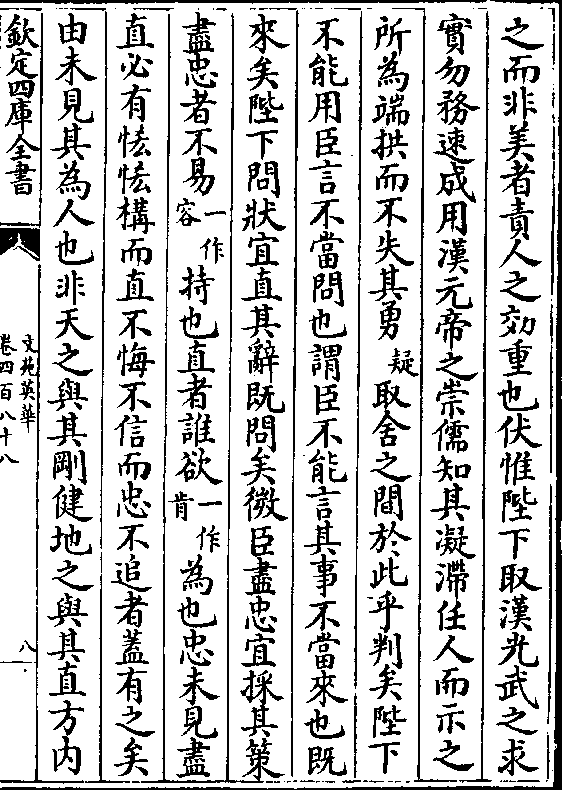 之而非美者責人之効重也伏惟陛下取漢光武之求
實勿務速成用漢元帝之崇儒知其凝滯任人而示之
所為端拱而不失其勇疑取舍之間於此乎判矣陛下
不能用臣言不當問也謂臣不能言其事不當來也既
來矣陛下問狀宜直其辭既問矣微臣盡忠宜採其策
盡忠者不易一作容持也直者誰欲一作肯為也忠未見盡
直必有怯怯構而直不悔不信而忠不追者蓋有之矣
由未見其為人也非天之與其剛健地之與其直方內
欽定四庫全書
文苑英華
卷四百八十八
八